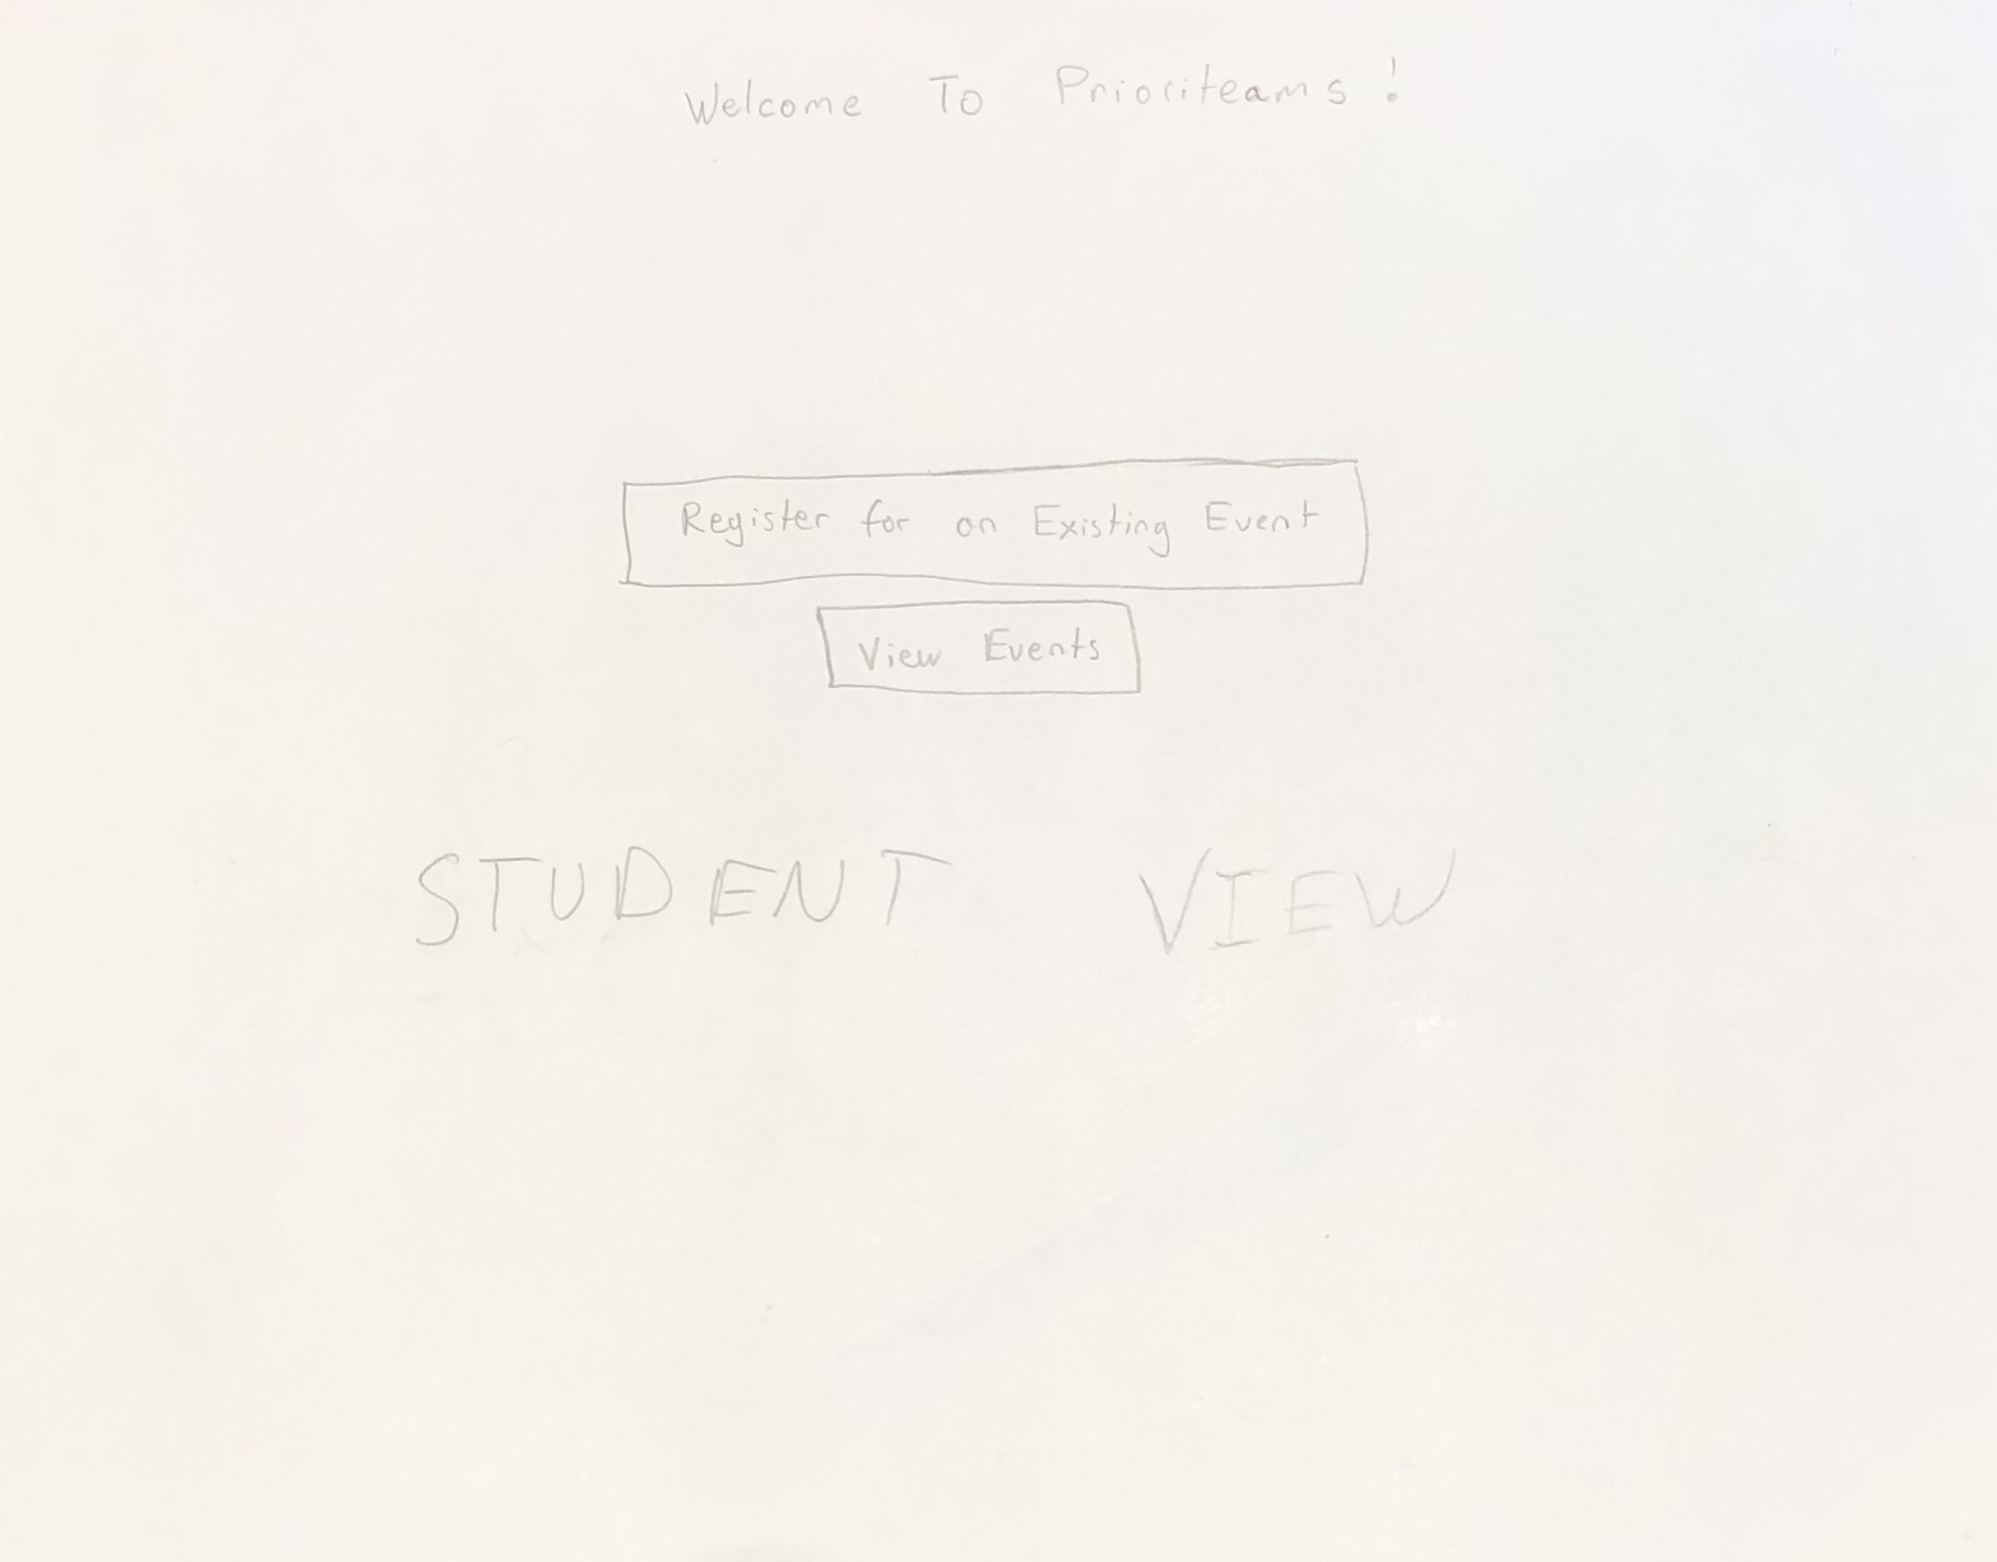 Welcome To Prioriteams!
Register for an Existing Event
View Events
STUDENT VIEW